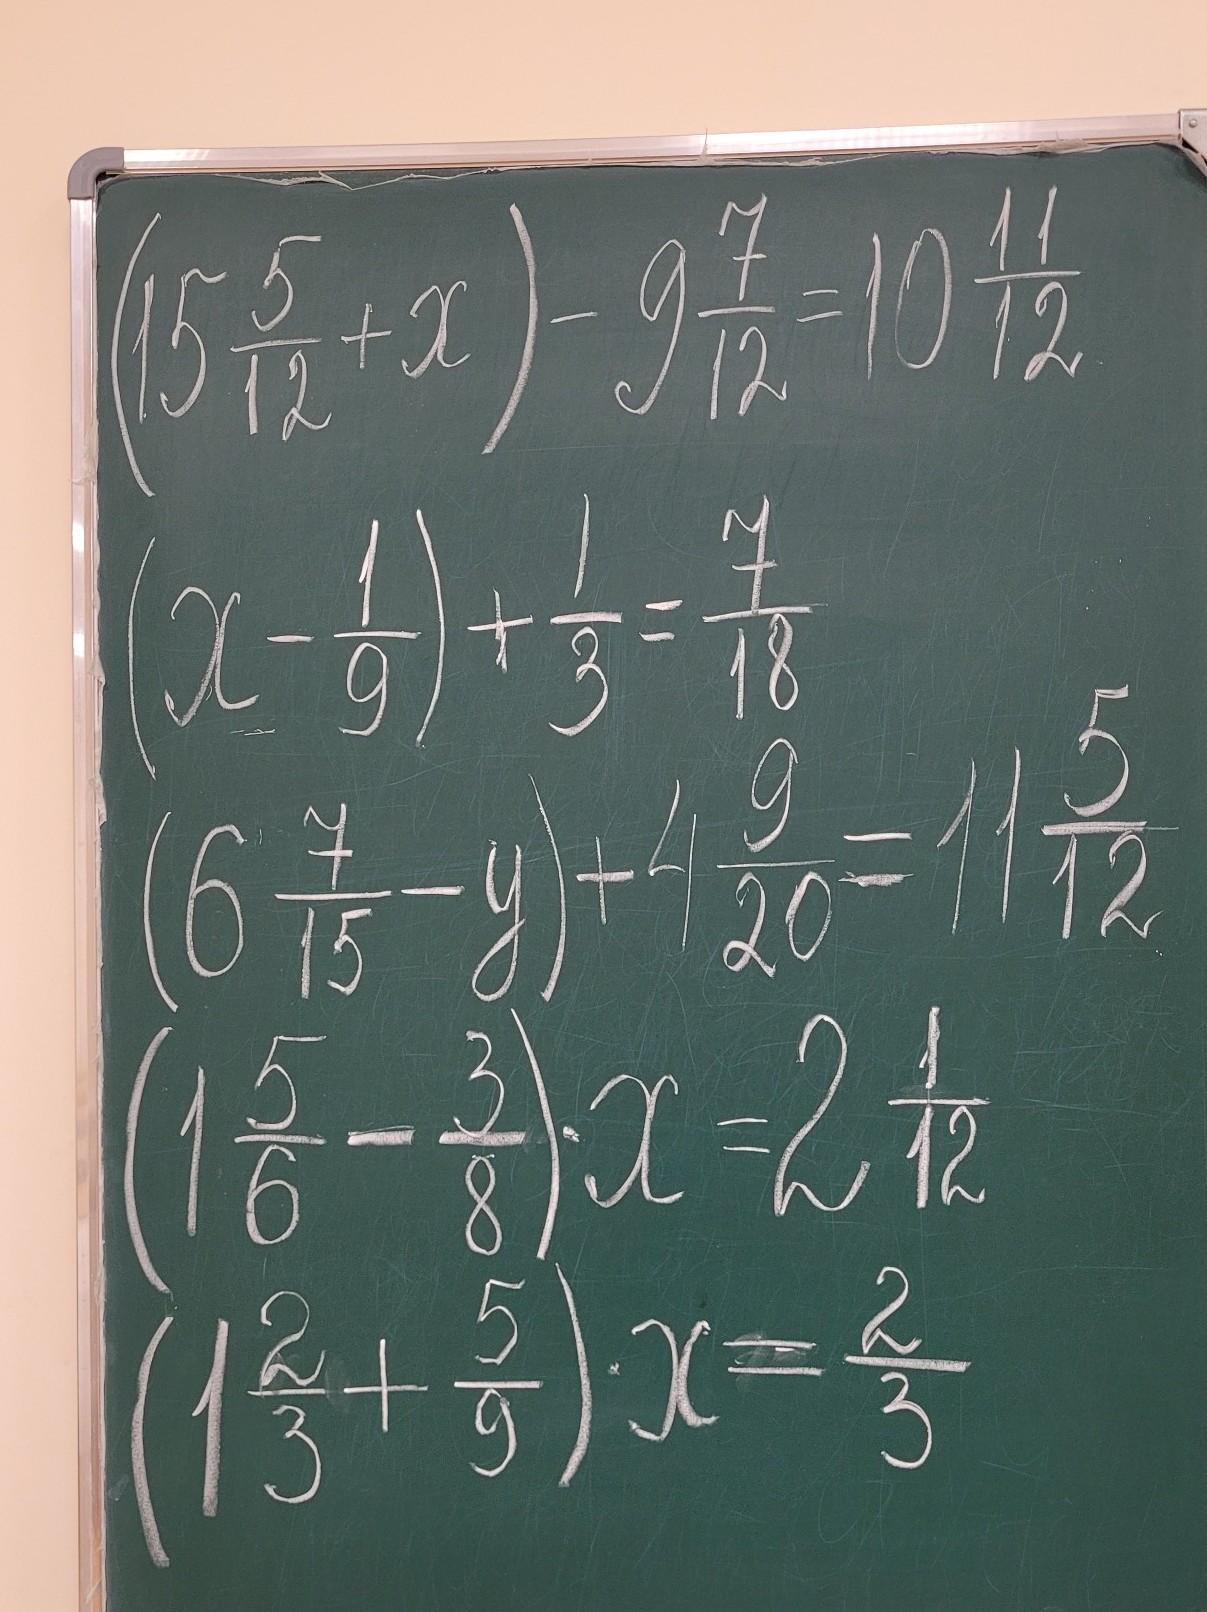 (15 5/12 + x) - 9 7/12 = 10 11/12
(x - 1/9) + 1/3 = 7/18
(6 7/15 - y) + 4 9/20 = 11 5/12
(1 5/6 - 3/8) · x = 2 1/12
(1 2/3 + 5/9) · x = 2/3